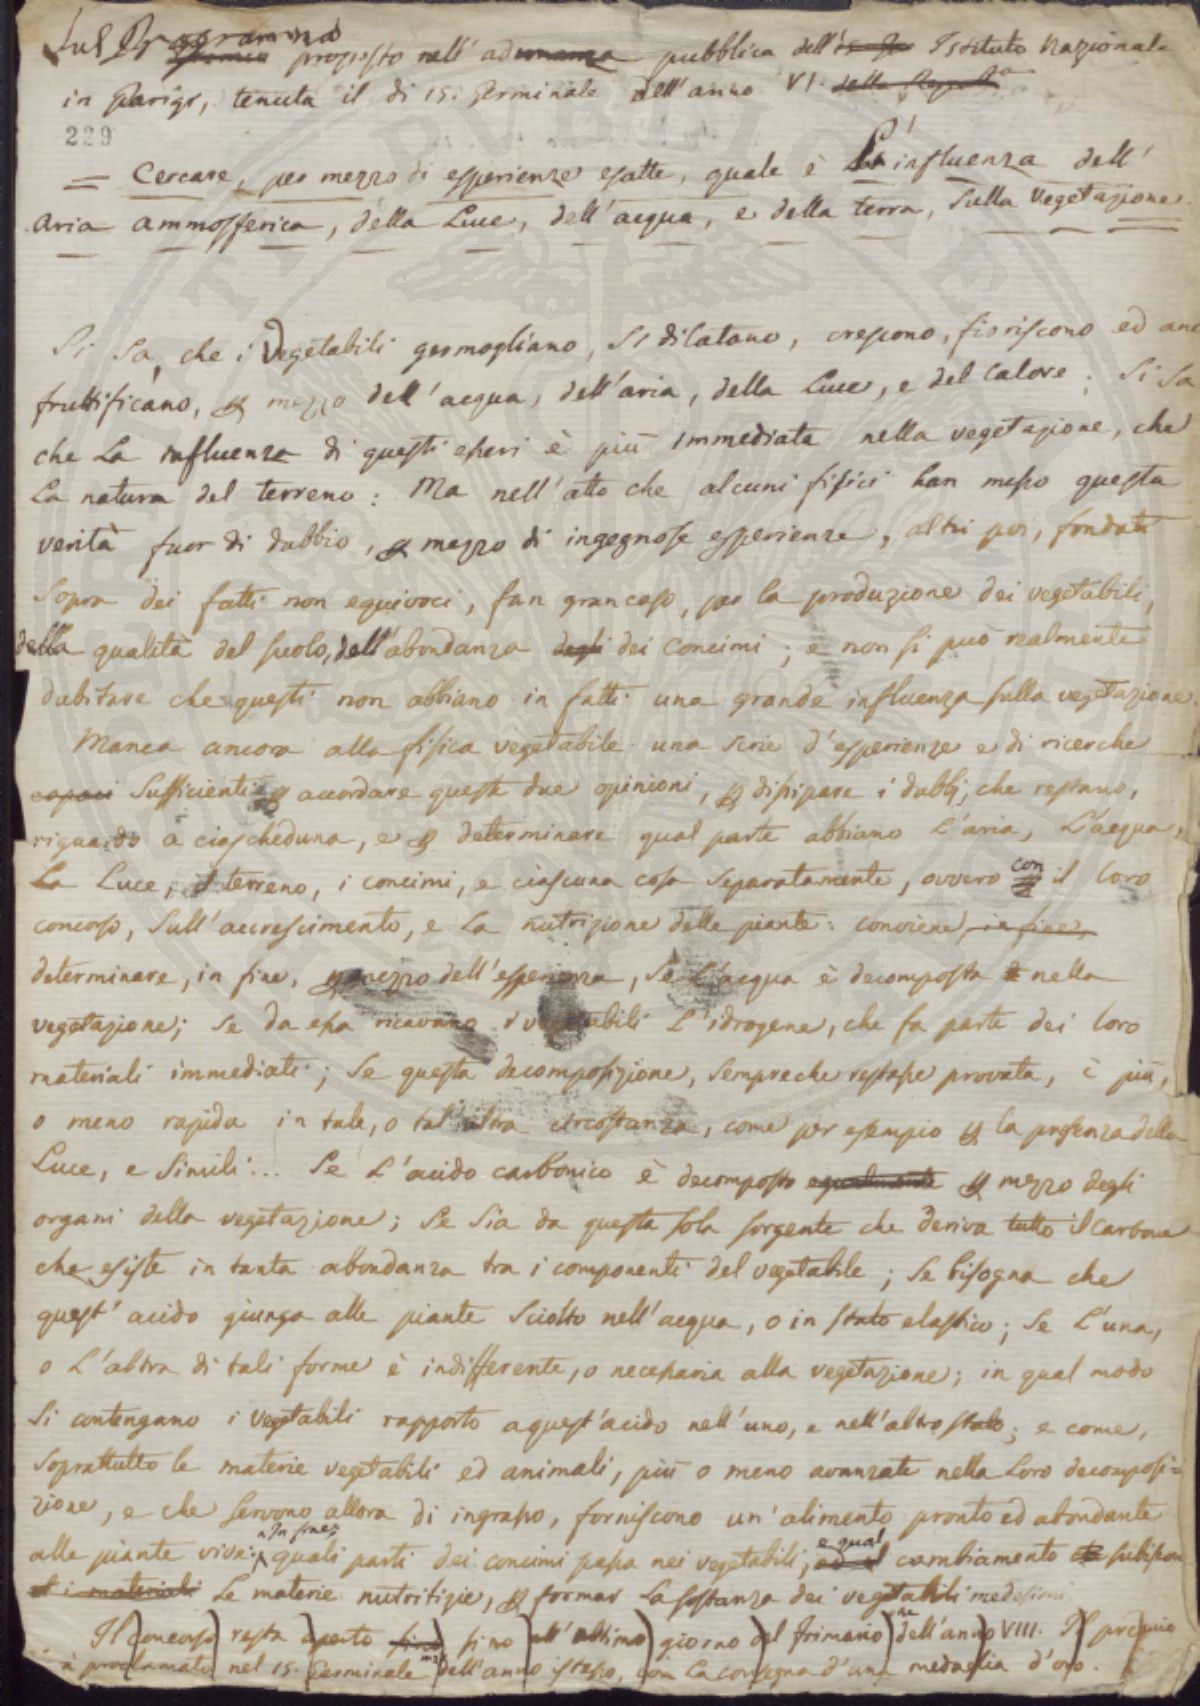 Sul Programma proposto nell' adunanza pubblica dell' Istituto Nazionale
in Parigi, tenuta il di 15. Germinale dell'anno VI. della
229
= Cercare, per mezzo di esperienze esatte, quale è L'influenza dell'
Aria ammosferica, della Luce, dell'acqua, e della terra, sulla Vegetazione.
Si sa, che i Vegetabili germogliano, si dilatano, crescono, fioriscono ed anc
fruttificano, p mezzo dell'acqua, dell'aria, della Luce, e del Calore; Si sa
che La influenza di questi esseri è più immediata nella vegetazione, che
la natura del terreno: Ma nell'atto che alcuni fisici han messo questa
verità fuor di dubbio, p mezzo di ingegnose esperienze, altri poi, fondati
sopra dei fatti non equivoci, fan gran caso, per la produzione dei vegetabili,
della qualità del suolo, dell'abondanza degli dei Concimi; e non si può realmente
dubitare che questi non abbiano in fatti una grande influenza sulla vegetazione
Manca ancora alla fisica vegetabile una serie d'esperienze e di ricerche
capaci sufficienti p accordare queste due opinioni, p dissipare i dubbj, che restano,
riguardo a ciascheduna, e p determinare qual parte abbiano L'aria, L'acqua,
La Luce, il terreno, i concimi, e ciascuna cosa separatamente, ovvero con il loro
concorso, sull'accrescimento, e La nutrizione delle piante: conviene, in fine,
determinare, in fine, p mezzo dell'esperienza, se L'acqua è decomposta nella
vegetazione; se da essa ricavano i vegetabili L'idrogene, che fa parte dei loro
materiali immediati; se questa decomposizione, sempreche restasse provata, è più,
o meno rapida in tale, o tal'altra circostanza, come per esempio p la presenza della
Luce, e simili... Se L'acido carbonico è decomposto egualmente p mezzo degli
organi della vegetazione; se sia da questa sola sorgente che deriva tutto il carbone
che esiste in tanta abondanza tra i componenti del vegetabile; se bisogna che
quest'acido giunga alle piante sciolto nell'acqua, o in stato elastico; se L'una,
o L'altra di tali forme è indifferente, o necessaria alla vegetazione; in qual modo
si contengano i vegetabili rapporto a quest'acido nell'uno, e nell'altro stato; e come,
soprattutto le materie vegetabili ed animali, più o meno avanzate nella loro decomposi=
zione, e che servono allora di ingrasso, forniscono un'alimento pronto ed abondante
alle piante vive: In fine; quali parti dei concimi passa nei vegetabili, e qual cambiamento subiscon
i materiali Le materie nutritizie, p formar La sostanza dei vegetabili medesimi
Il concorso resta aperto fino fino all'ultimo giorno del frimario dell'anno VIII. Il premio
è proclamato nel 15. Germinale dell'anno istesso, con La consegna d'una medaglia d'oro.